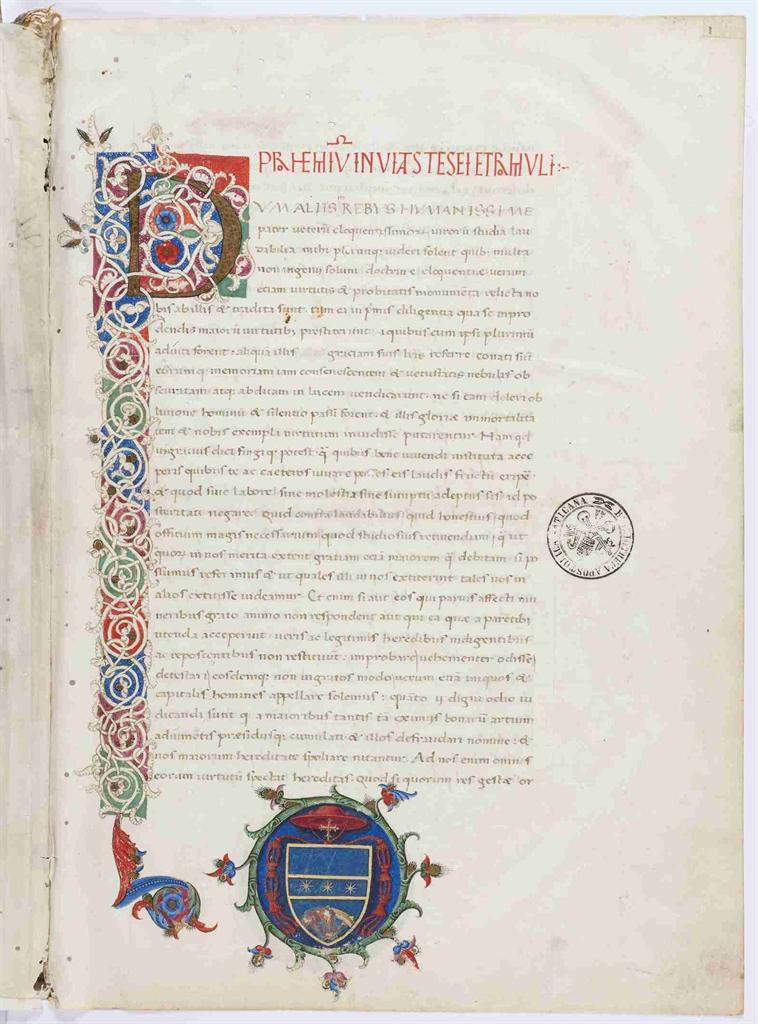 1
PRHEMIV IN VITAS TESEI ET RHMVLI :~
D
VM ALIIS REBVS HVMANISSIME
pater veterū eloquentissimorū virorū studia lau
dabilia mihi plerunq; videri solent quib; multa
non ingenij solum doctrinę eloquentię verum
etiam virtutis & probitatis monumēta relicta no
bis ab illis & tradita sunt tum ea in prīmis diligentia qua se in pro
dendis maiorū virtutib; prestiterunt a quibus cum ipsi plurimū
adiuti forent aliquā illis gratiam suis lr̄is referre conati sūt
eorumq; memoriam iam consenescentem & vetustatis nebulas ob
scuritatem atq; abditam in lucem vendicarunt ne si eam deleri ob
liuione hominū & silentio passi forent & illis glorię immortalita
tem & nobis exempla virtutum inuidisse putarentur Nam qd
iniquius dici fingiq; potest q̄ quibus bene viuendi instituta acce
peris quibus te ac caeteros iuuare potes eis laudis fructū eripē
& quod sine labore sine molestia sine sumptu adeptus sis id po
steritati negare Quid contra laudabilius quid honestius quod
officium magis necessarium quod studiosius retinendum q̄ ut
quorū in nos merita extent gratiam etiā maiorem q̄ debitam si po
ssumus referamus & ut quales illi in nos extiterint tales nos in
alios extitisse videamur Et enim si aut eos qui paruis affecti mu
neribus grato animo non respondent aut qui ea quæ a parētibꝰ
utenda acceperunt veris ac legitimis heredibus indigentibus
ac reposcentibus non restituūt : improbare vehementer odisse
detestari eosdemq; non ingratos modo verum etiā iniquos &
capitalis homines appellare solemus : quāto ii digni odio iu
dicandi sunt q a maioribus tantis tā eximiis bonarū artium
adiumētis præsidiisq; cumulati & illos defraudari nomine : &
nos maiorum hereditate spoliare nitantur . Ad nos enim omnis
eorum virtutū spectat hereditas Quod si quorum res gestæ or
BIBLIOTHECA APOSTOLICA VATICANA